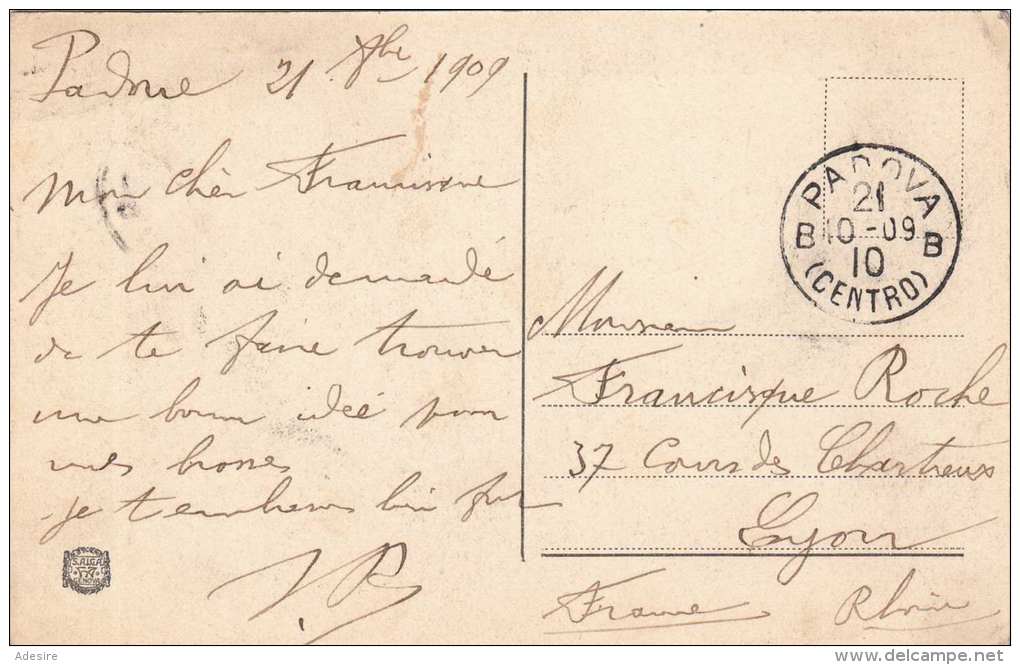 Padoue 21 Xbre 1909
Mon cher Francisque
Je lui ai demandé
de te faire trouver
une bonne idée pour
mes brosses
je t'embrasse bien fort
J. R.
PADOVA
21
10-09
10
B B
(CENTRO)
Monsieur
Francisque Roche
37 Cours des Chartreux
Lyon
France Rhône
S.A.I.G.A.
GENOVA
Adesire
delcampe.net